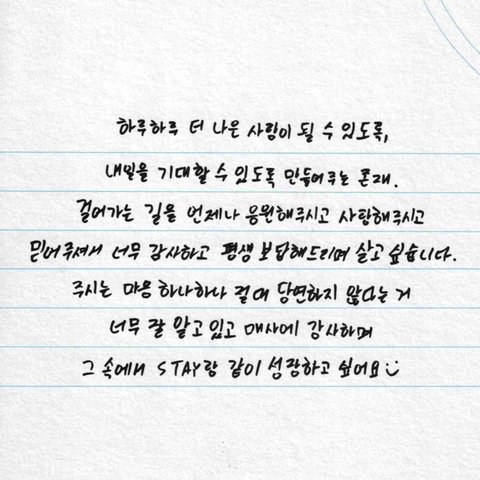 하루하루 더 나은 사람이 될 수 있도록,
내일을 기대할 수 있도록 만들어주는 존재.
걸어가는 길을 언제나 응원해주시고 사랑해주시고
믿어주셔서 너무 감사하고 평생 보답해드리며 살고 싶습니다.
주시는 마음 하나하나 절대 당연하지 않다는 거
너무 잘 알고 있고 매사에 감사하며
그 속에서 STAY랑 같이 성장하고 싶어요